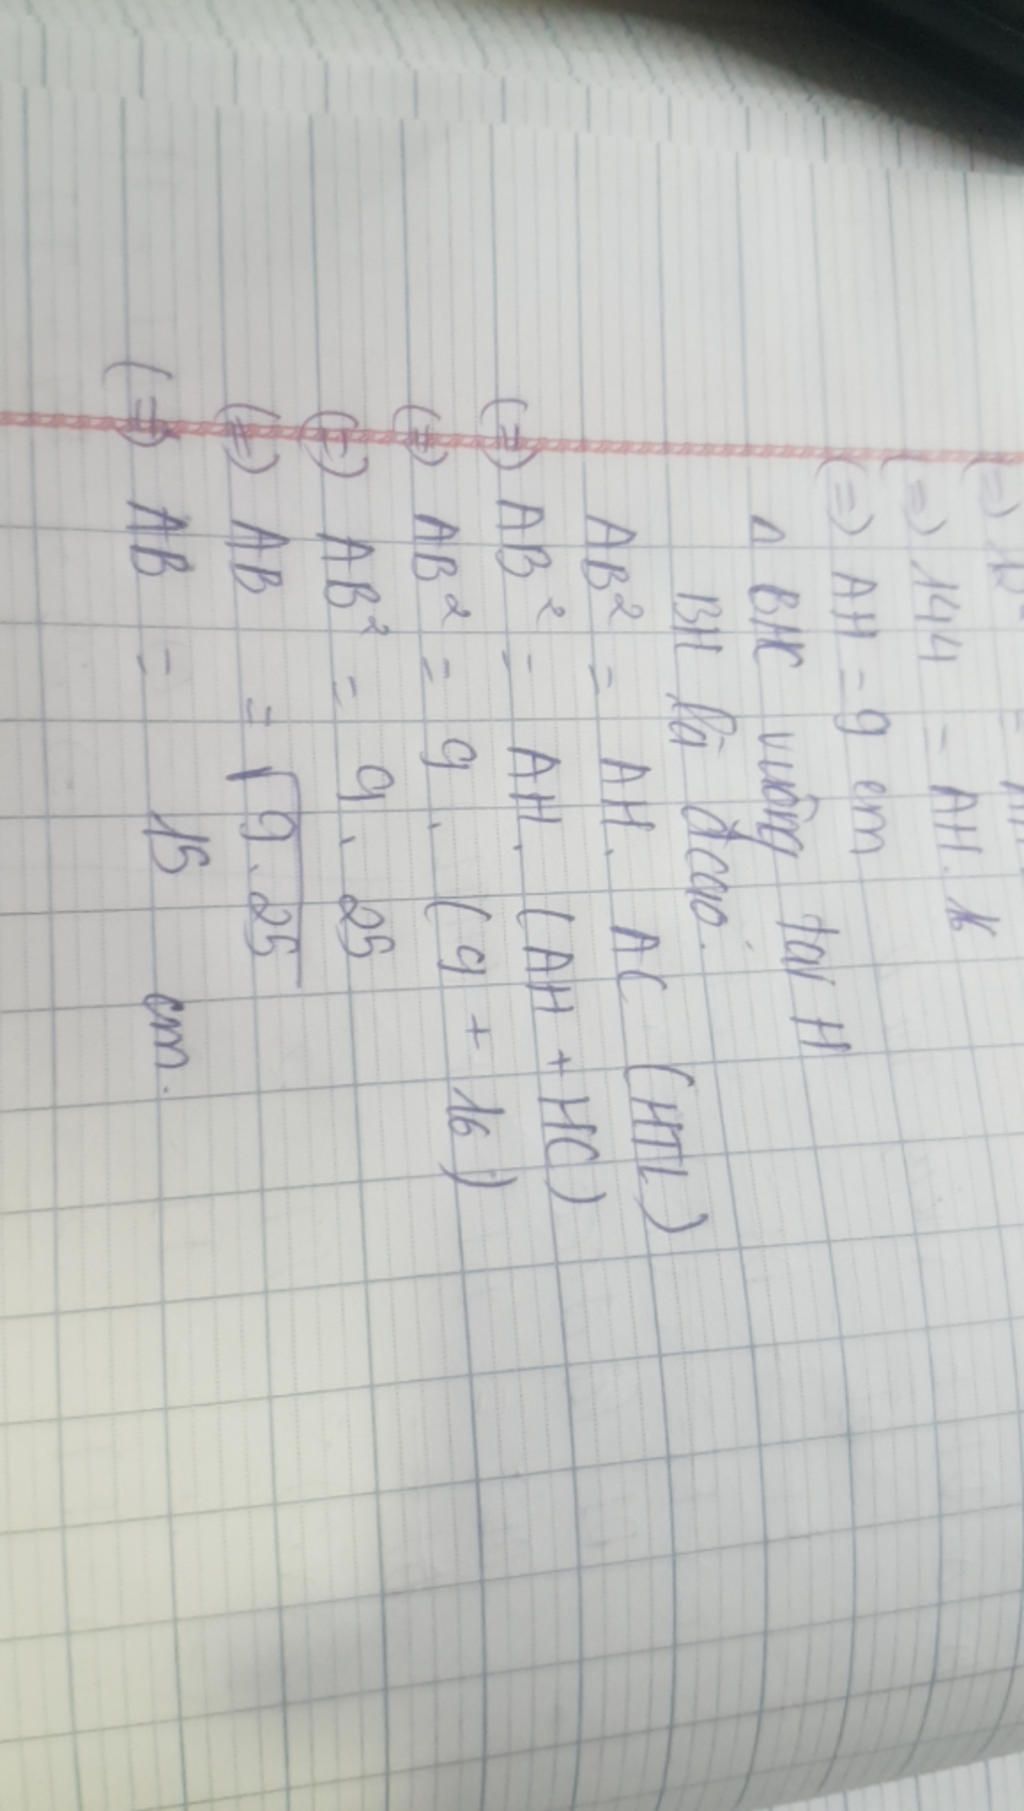 (=) 12² =
(=) 144 = AH. 16
(=) AH = 9 cm
Δ BHC vuông tại H
BH là đcao.
AB² = AH. AC (HTL)
(=) AB² = AH. (AH + HC)
(=) AB² = 9. (9 + 16)
(=) AB² = 9. 25
(=) AB = √9.25
(=) AB = 15 cm.